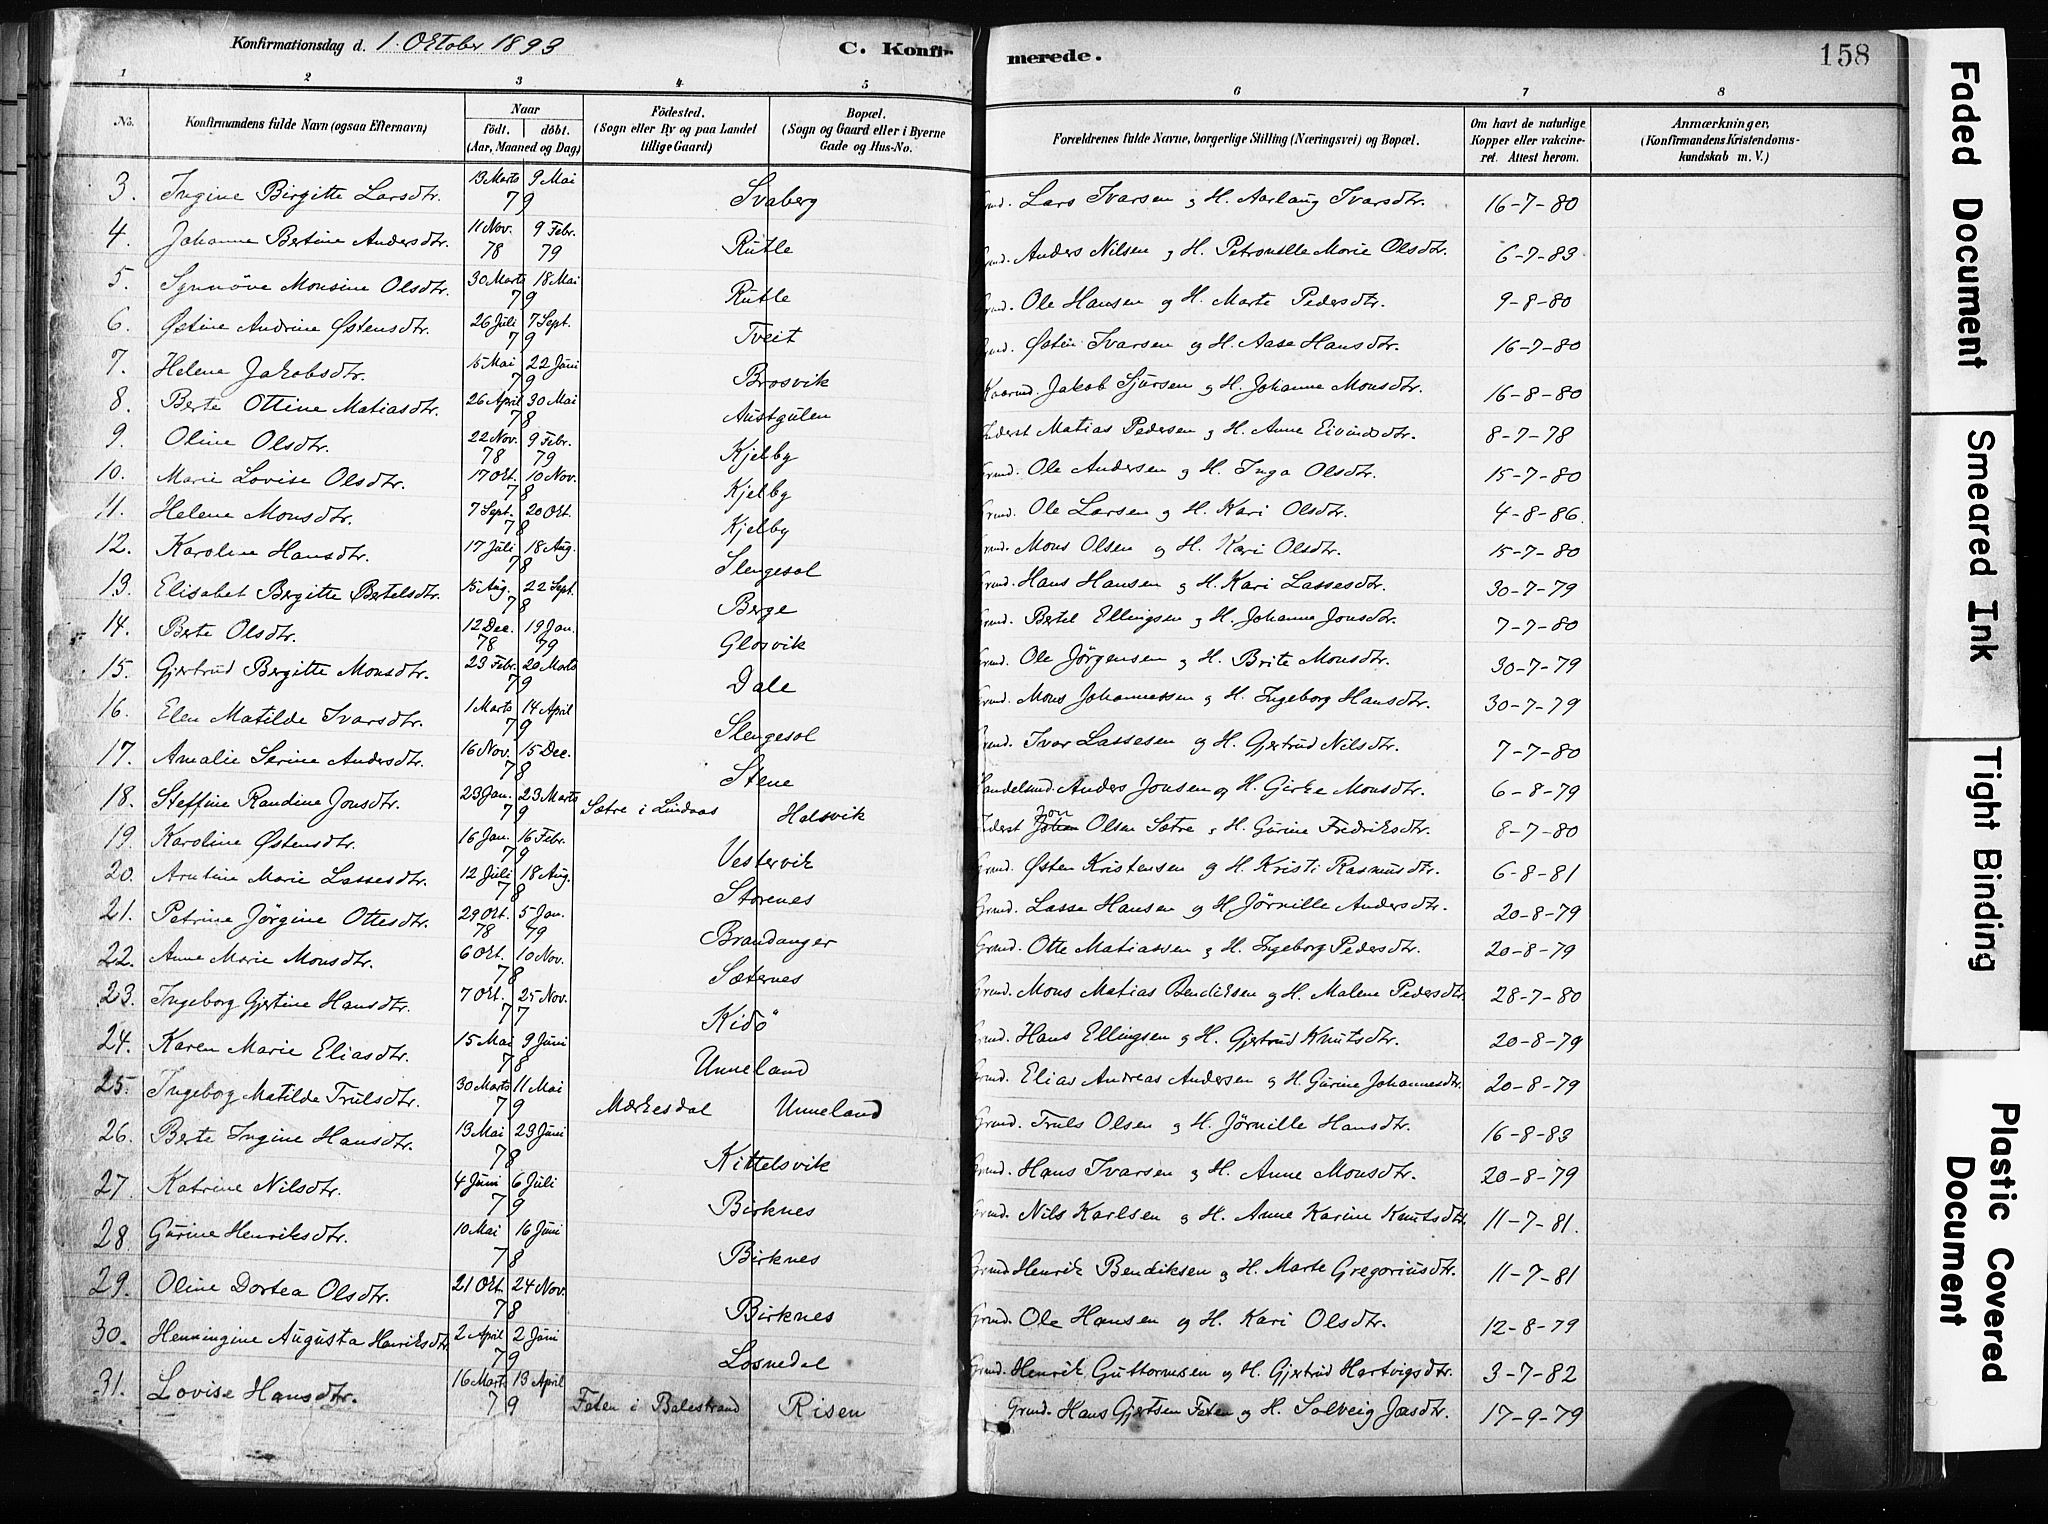 Konfirmationsdag d. 1. Oktober 1893 C. Konfir merede. 158
1 2 3 4 5 6 7 8
No. Konfirmandens fulde Navn (ogsaa Efternavn) Naar födt. döbt. (Aar, Maaned og Dag) Födested. (Sogn eller By og paa Landet tillige Gaard) Bopæl. (Sogn og Gaard eller i Byerne Gade og Hus-No. Forældrenes fulde Navne, borgerlige Stilling (Næringsvei) og Bopæl. Om havt de naturlige Kopper eller vakcineret. Attest herom. Anmærkninger, (Konfirmandens Kristendomskundskab m. V.)
3. Ingine Birgitte Larsdtr. 13 Marts 9 Mai 79 Svaberg Lars Ivarsen og H. Aarlaug Ivarsdtr. 16-7-80
4. Johanne Bertine Andersdtr. 11 Nov. 78 9 Febr. 79 Rutle Anders Nilsen og H. Petronelle Marie Olsdtr. 6-7-83
5. Synnöve Monsine Olsdtr. 30 Marts 18 Mai 79 Rutle Ole Hansen og H. Marte Pedersdtr. 9-8-80
6. Østine Andrine Østensdtr. 26 Juli 7 Sept. 79 Tveit Østen Ivarsen og H. Aase Hansdtr. 16-7-80
7. Helene Jakobsdtr. 15 Mai 22 Juni 79 Brosvik Jakob Sjursen og H. Johanne Monsdtr. 16-8-80
8. Berte Ottine Matiasdtr. 26 April 30 Mai 78 Austgulen Matias Pedersen og H. Anne Eivindsdtr. 8-7-78
9. Oline Olsdtr. 22 Nov. 78 9 Febr. 79 Kjelby Grud. Ole Andersen og H. Inga Olsdtr. 15-7-80
10. Marie Lovise Olsdtr. 17 Okt. 10 Nov. 78 Kjelby Grud. Ole Larsen og H. Kari Olsdtr. 4-8-86.
11. Helene Monsdtr. 7 Sept. 20 Okt. 78 Kjelby Grud. Mons Olsen og H. Kari Olsdtr. 15-7-80
12. Karoline Hansdtr. 17 Juli 18 Aug. 78 Slengesol Grud. Hans Hansen og H. Kari Lassesdtr. 30-7-79
13. Elisabet Bergitte Bertelsdtr. 15 Aug. 22 Sept. 78 Berge Grud. Bertel Ellingsen og H. Johanne Jonsdtr. 7-7-80
14. Berte Olsdtr. 12 Dec. 78 19 Jan. 79 Glosvik Grud. Ole Jörgensen og H. Brite Monsdtr. 30-7-79
15. Gjertrud Bergitte Monsdtr. 23 Febr. 20 Marts 79 Dale Grud. Mons Johannessen og H. Ingeborg Hansdtr. 30-7-79
16. Elen Matilde Ivarsdtr. 1 Marts 14 April 79 Slengesol Grud. Ivar Lassesen og H. Gjertrud Nilsdtr. 7-7-80
17. Amalie Serine Andersdtr. 16 Nov. 15 Dec. 78 Stene Anders Jonsen og H. Girke Monsdtr. 6-8-79
18. Steffine Randine Jonsdtr. 23 Jan. 23 Marts 79 Sætre i Lindaas Halsvik Jon Olsen Sætre og H. Gurine Fredriksdtr. 8-7-80
19. Karoline Østensdtr. 16 Jan. 16 Febr. 79 Vestervik Grud. Østen Kristensen og H. Kristi Rasmusdtr. 6-8-81
20. Arntine Marie Lassesdtr. 12 Juli 18 Aug. 78 Storenes Grud. Lasse Hansen og H Jörnille Andersdtr. 20-8-79
21. Petrine Jörgine Ottesdtr. 29 Okt. 78 5 Jan. 79 Brandanger Grud. Otte Matiassen og H. Ingeborg Pedersdtr. 20-8-79
22. Anne Marie Monsdtr. 6 Okt. 10 Nov. 78 Sæternes Grud. Mons Matias Bendiksen og H. Malene Pedersdtr. 28-7-80
23. Ingeborg Gjertine Hansdtr. 7 Okt. 25 Nov. 77 Kidö Grud. Hans Ellingsen og H. Gjertrud Knutsdtr. 20-8-79
24. Karen Marie Eliasdtr. 15 Mai 9 Juni 78 Unneland Grud. Elias Andreas Andersen og H. Gurine Johannesdtr. 20-8-79
25. Ingeborg Matilde Trulsdtr. 30 Marts 11 Mai 79 Mærkesdal Unneland Grud. Truls Olsen og H. Jörnille Hansdtr. 16-8-83
26. Berte Ingine Hansdtr. 13 Mai 23 Juni 78 Kittelsvik Grud. Hans Ivarsen og H. Anne Monsdtr. 20-8-79
27. Katrine Nilsdtr. 4 Juni 6 Juli 79 Birknes Grud. Nils Karlsen og H. Anne Karine Knutsdtr. 11-7-81.
28. Gurine Henriksdtr. 10 Mai 16 Juni 78 Birknes Grud Henrik Bendiksen og H. Marte Gregoriusdtr. 11-7-81
29. Oline Dortea Olsdtr. 21 Okt. 24 Nov. 78 Birknes Grud. Ole Hansen og H. Kari Olsdtr. 12-8-79
30. Henningine Augusta Henriksdtr. 2 April 2 Juni 79 Losnedal Grud. Henrik Guttormsen og H. Gjertrud Hartvigsdtr. 3-7-82
31. Lovise Hansdtr. 16 Marts 13 April 79 Feten i Balestrand Risen Grud. Hans Gjertsen Feten og H. Solveig Joesdtr. 17-9-79
Faded Document
Smeared Ink
Tight Binding
Plastic Covered Document